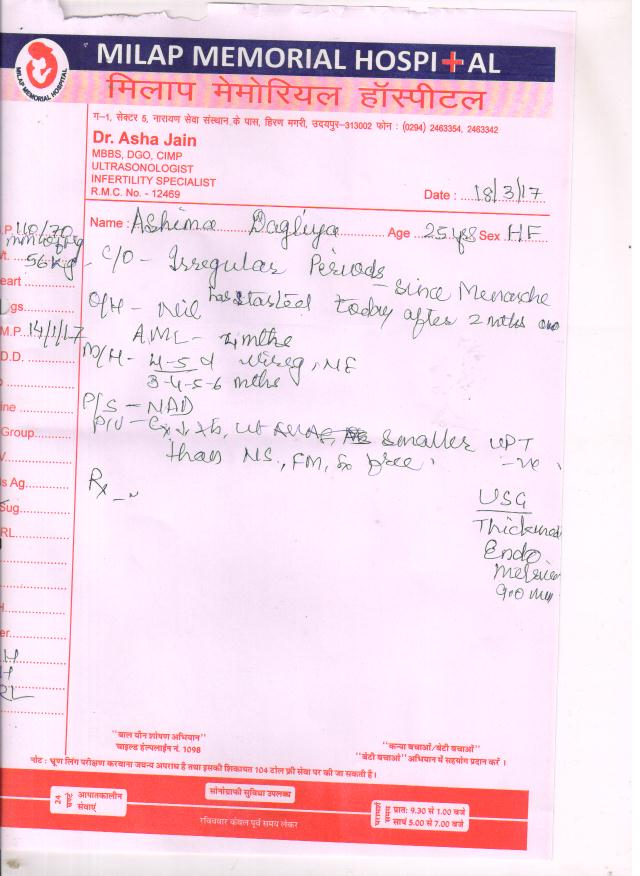 MILAP MEMORIAL HOSPITAL
MILAP MEMORIAL HOSPITAL
मिलाप मेमोरियल हॉस्पीटल
ग-1, सेक्टर 5, नारायण सेवा संस्थान के पास, हिरण मगरी, उदयपुर-313002 फोन : (0294) 2463354, 2463342
Dr. Asha Jain
MBBS, DGO, CIMP
ULTRASONOLOGIST
INFERTILITY SPECIALIST
R.M.C. No. - 12469
Date : 18/3/17
Name : Ashima Age 25 yrs Sex HF
.P 110/70
mm of Hg
t. 56 kg
eart
gs
M.P. 14/1/17
D.D.
ine
Group
V
s Ag.
Sug.
RL
H
er.
H
H
RL
C/O - Irregular Periods
- since Menarche
O/H - Nil
has started today after 2 mths
A.ML - mths
M/H - 4-5 d
3-4-5-6 mths
P/S - NAD
P/V - Cx smaller UPT
than NS, FM, free -ve
Rx
USG
Endo
9.0 mm
"बाल यौन शोषण अभियान"
चाइल्ड हेल्पलाईन नं. 1098
"कन्या बचाओं/बेटी बचाओं"
"बेटी बचाओं" अभियान में सहयोग प्रदान करें ।
नोट : भ्रूण लिंग परीक्षण करवाना जघन्य अपराध है तथा इसकी शिकायत 104 टोल फ्री सेवा पर की जा सकती है।
24 घण्टे आपातकालीन सेवाएं
सोनोग्राफी सुविधा उपलब्ध
रविवार केवल पूर्व समय लेकर
परामर्श समय प्रातः 9.30 से 1.00 बजे
सायं 5.00 से 7.00 बजे